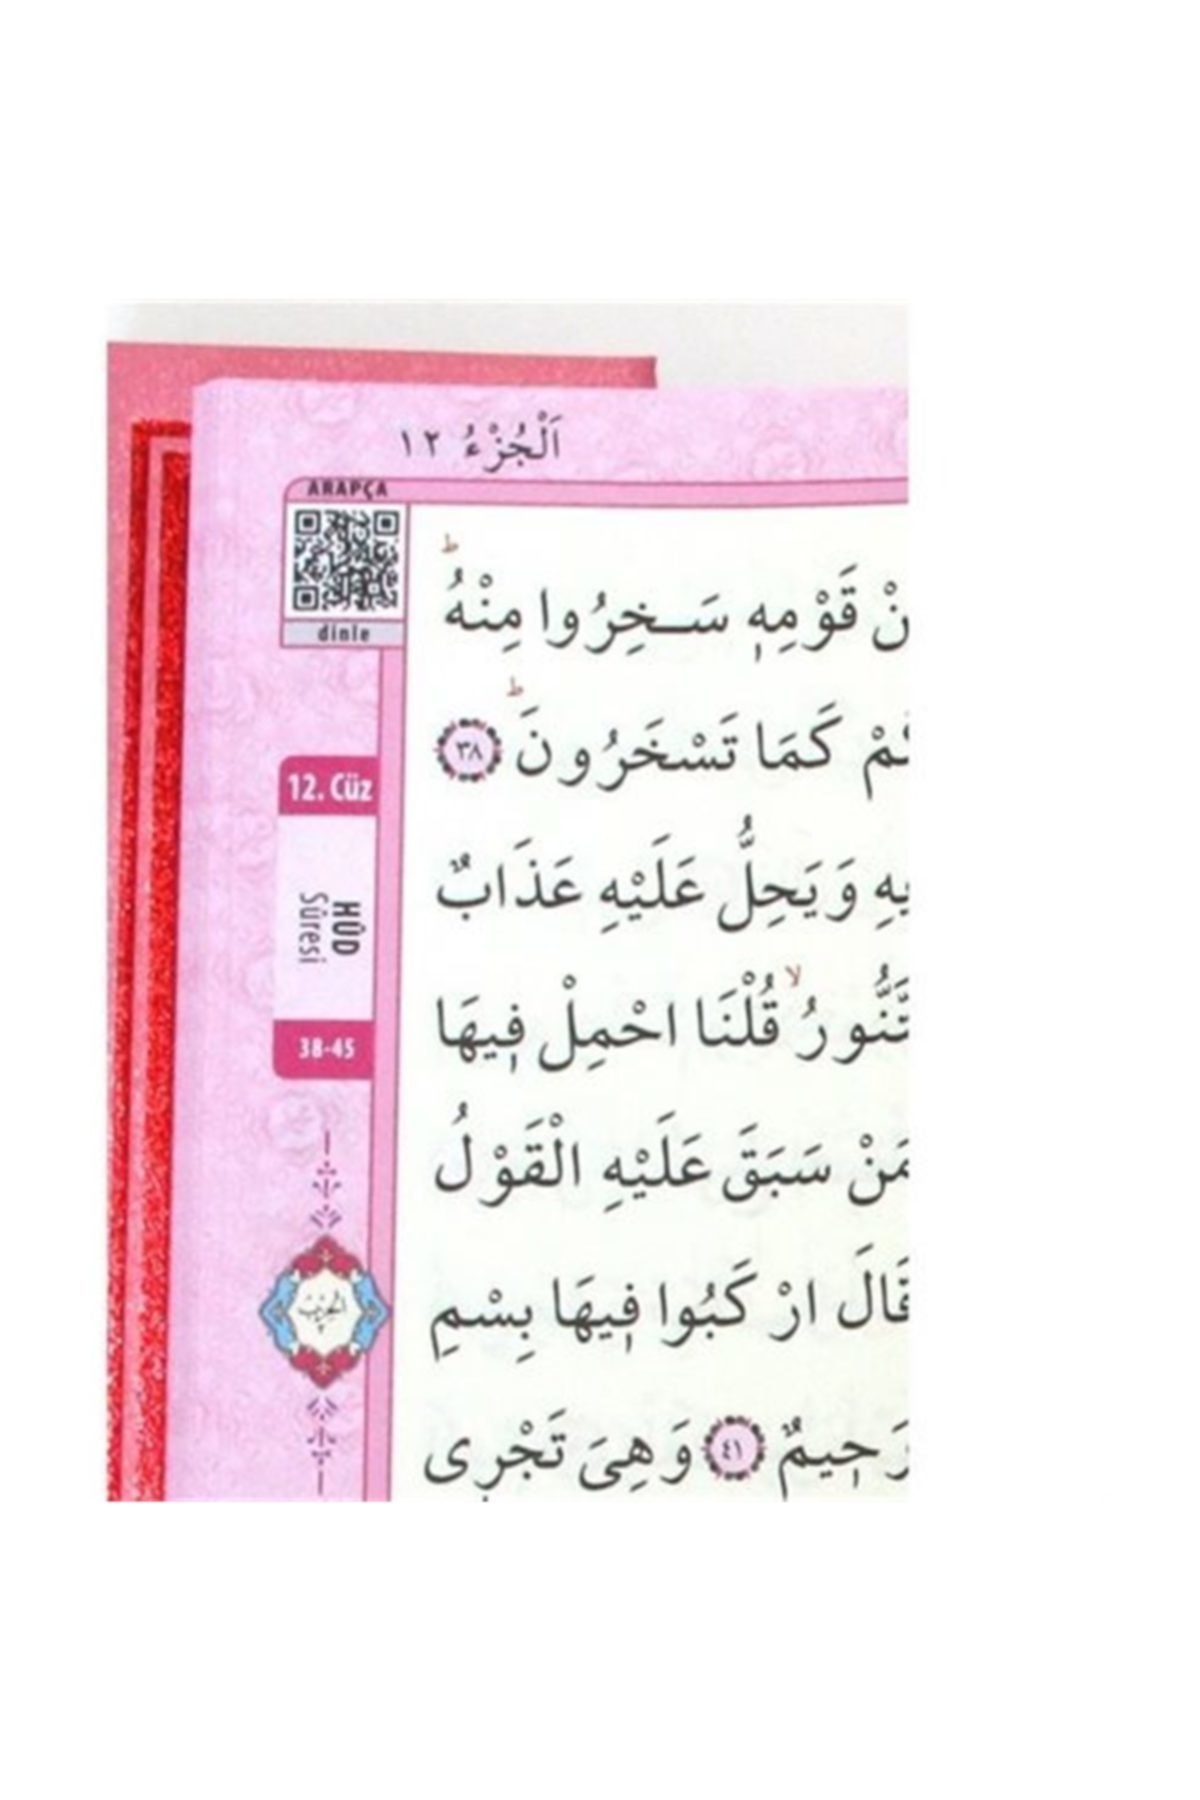 اَلْجُزْءُ ١٢
ARAPÇA
dinle
12. Cüz
HÛD
Sûresi
38-45
اَلْحِزْبُ
قَوْمِهٖ سَـخِرُوا مِنْهُؕ
كَمَا تَسْخَرُونَؕ ﴿٣٨﴾
وَيَحِلُّ عَلَيْهِ عَذَابٌ
قُلْنَا احْمِلْ فٖيهَا
سَبَقَ عَلَيْهِ الْقَوْلُ
قَالَ ارْكَبُوا فٖيهَا بِسْمِ
رَحٖيمٌ ﴿٤١﴾ وَهِىَ تَجْرٖى